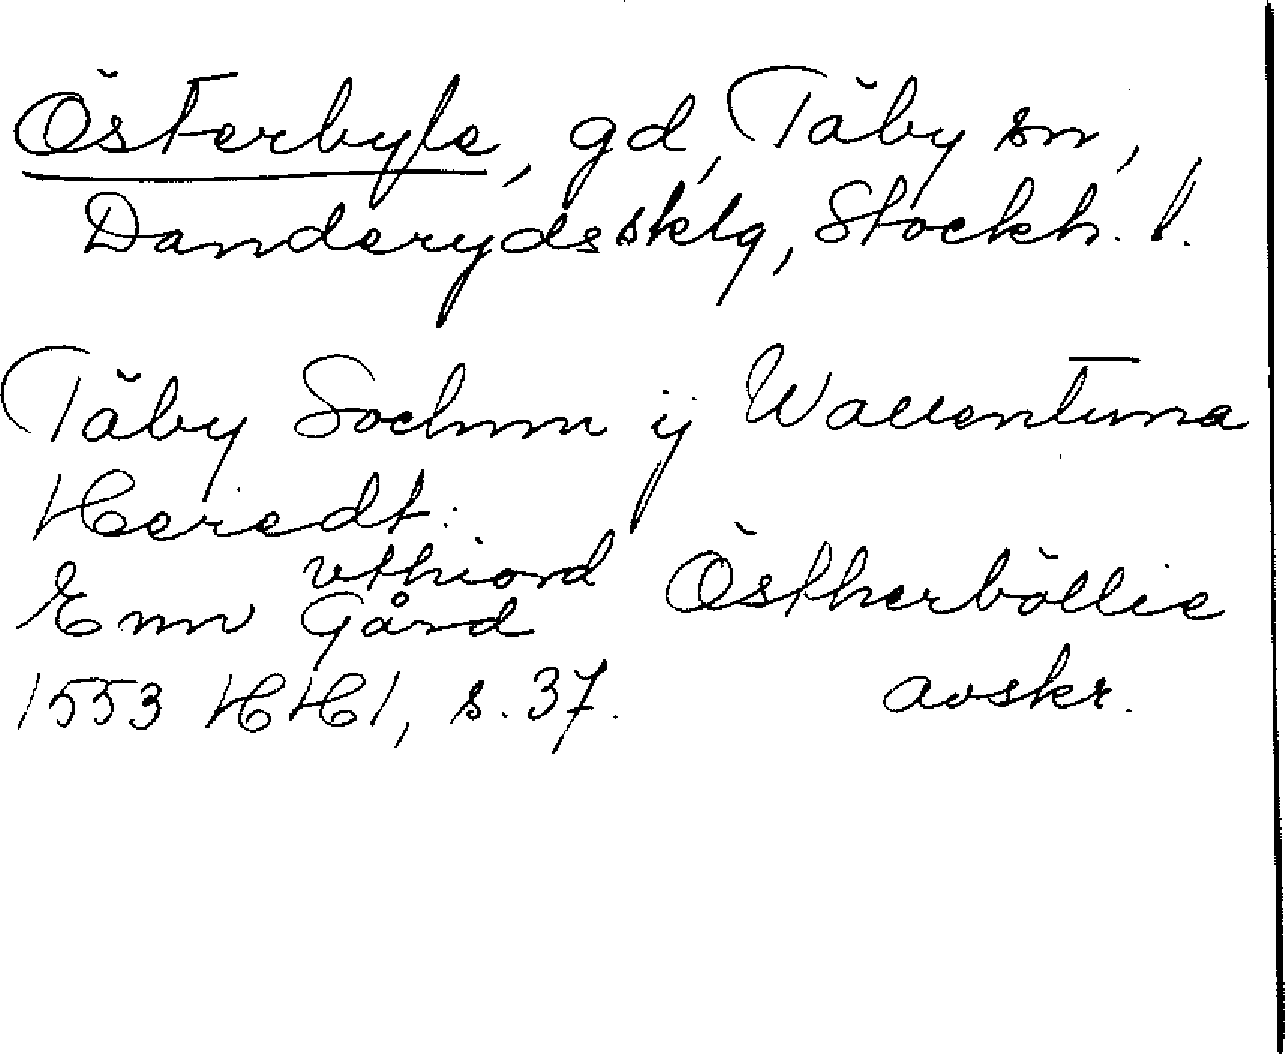 Österbyle, gd, Täby sn,
Danderyds sklg, Stockh. l.
Täby Sochnn ij Wallentuna
Heredt:
vthiord
Enn Gård Östherböllie
1553 HH1, s. 37. avskr.